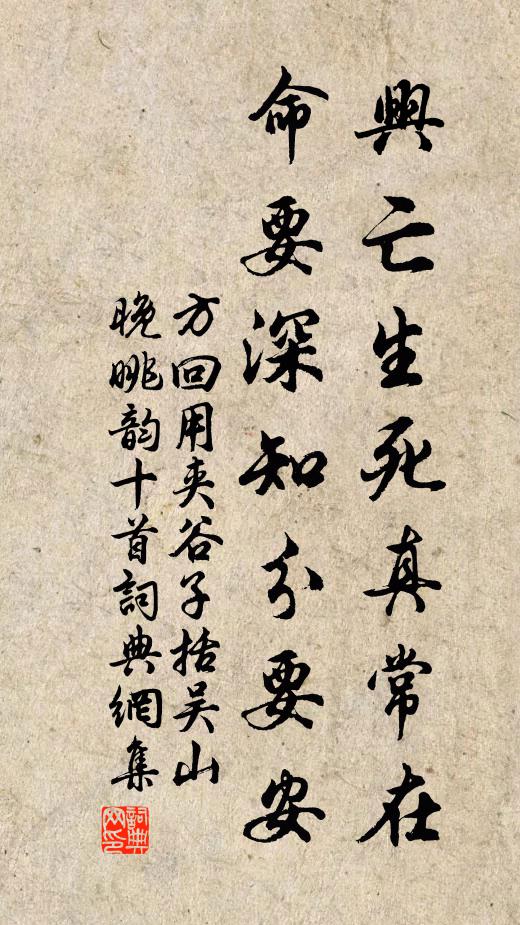 興亡生死真常在
命要深知分要安
方回用夾谷子括吴山
晚眺韵十首詞典網集
詞典网印